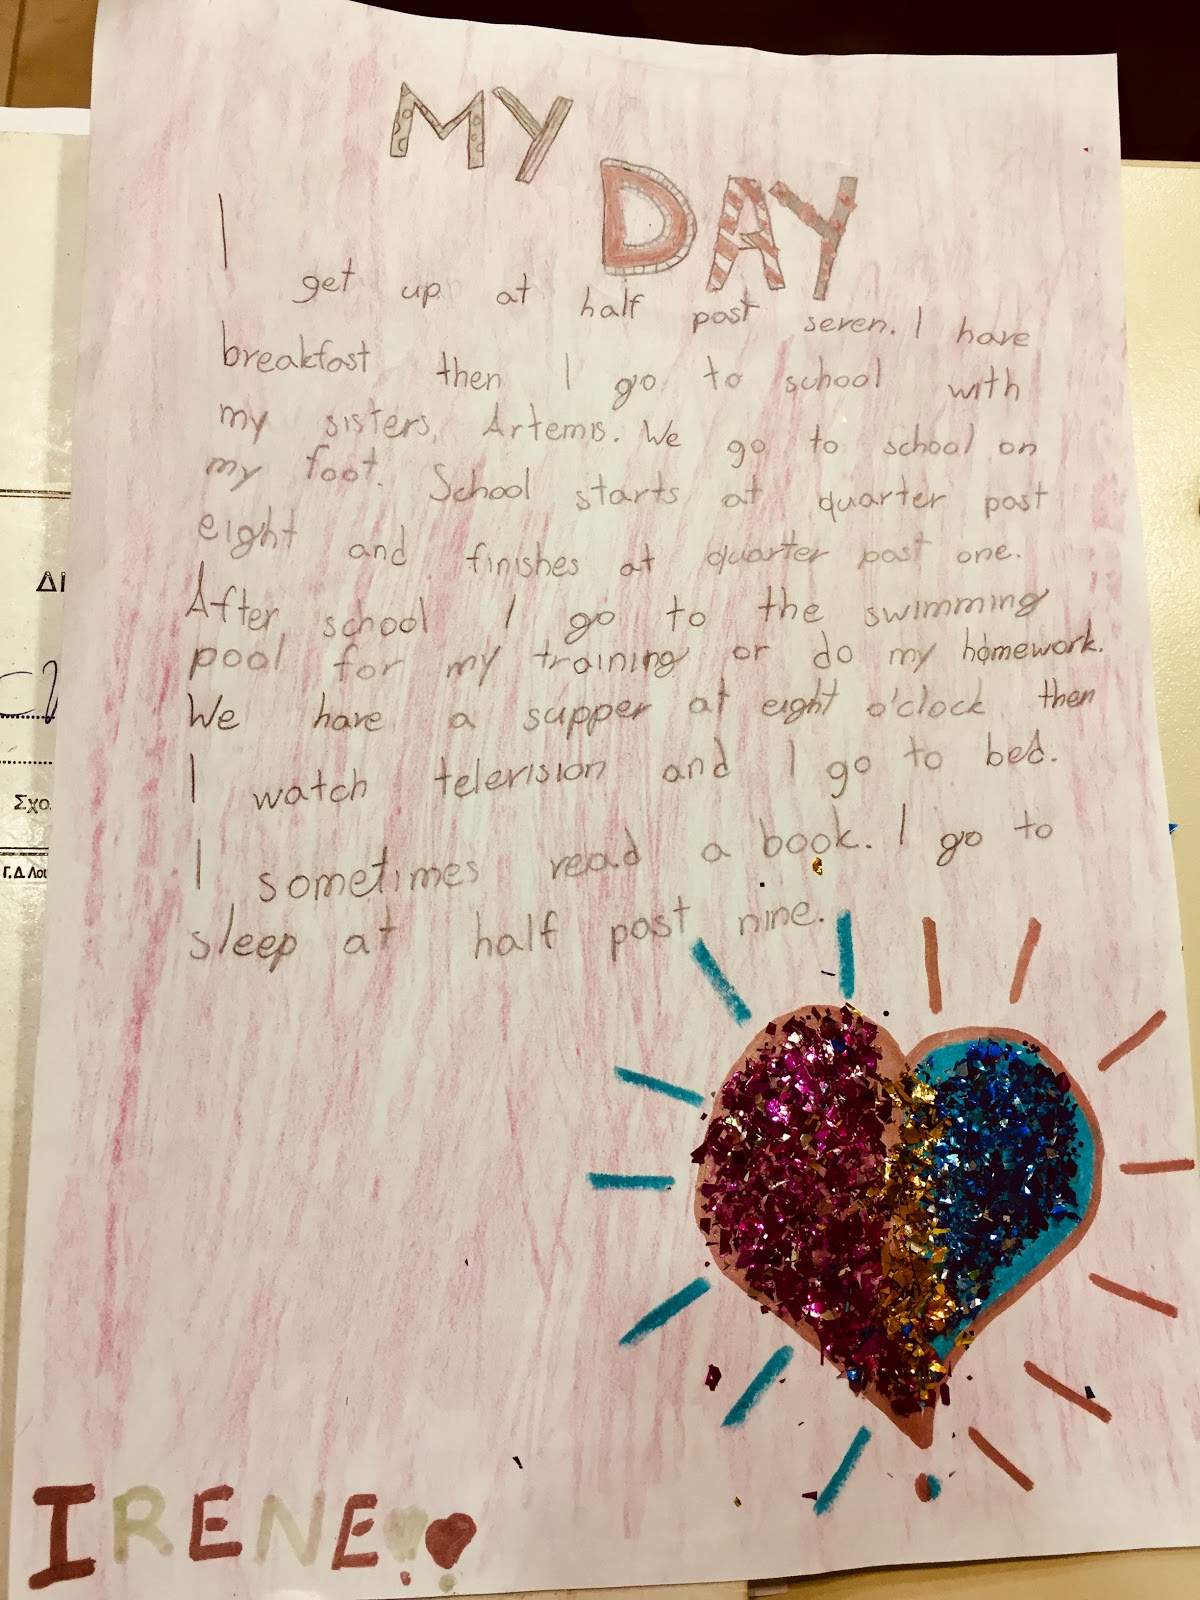 MY
DAY
I
get up at half past seven. I have
breakfast then I go to school with
my sisters, Artemis. We go to school on
my foot. School starts at quarter past
eight and finishes at quarter past one.
After school I go to the swimming
pool for my training or do my homework.
We have a supper at eight o'clock then
I watch television and I go to bed.
I sometimes read a book. I go to
sleep at half past nine.
IRENE!
ΔΙ
Σχο
Γ.Δ.Λου